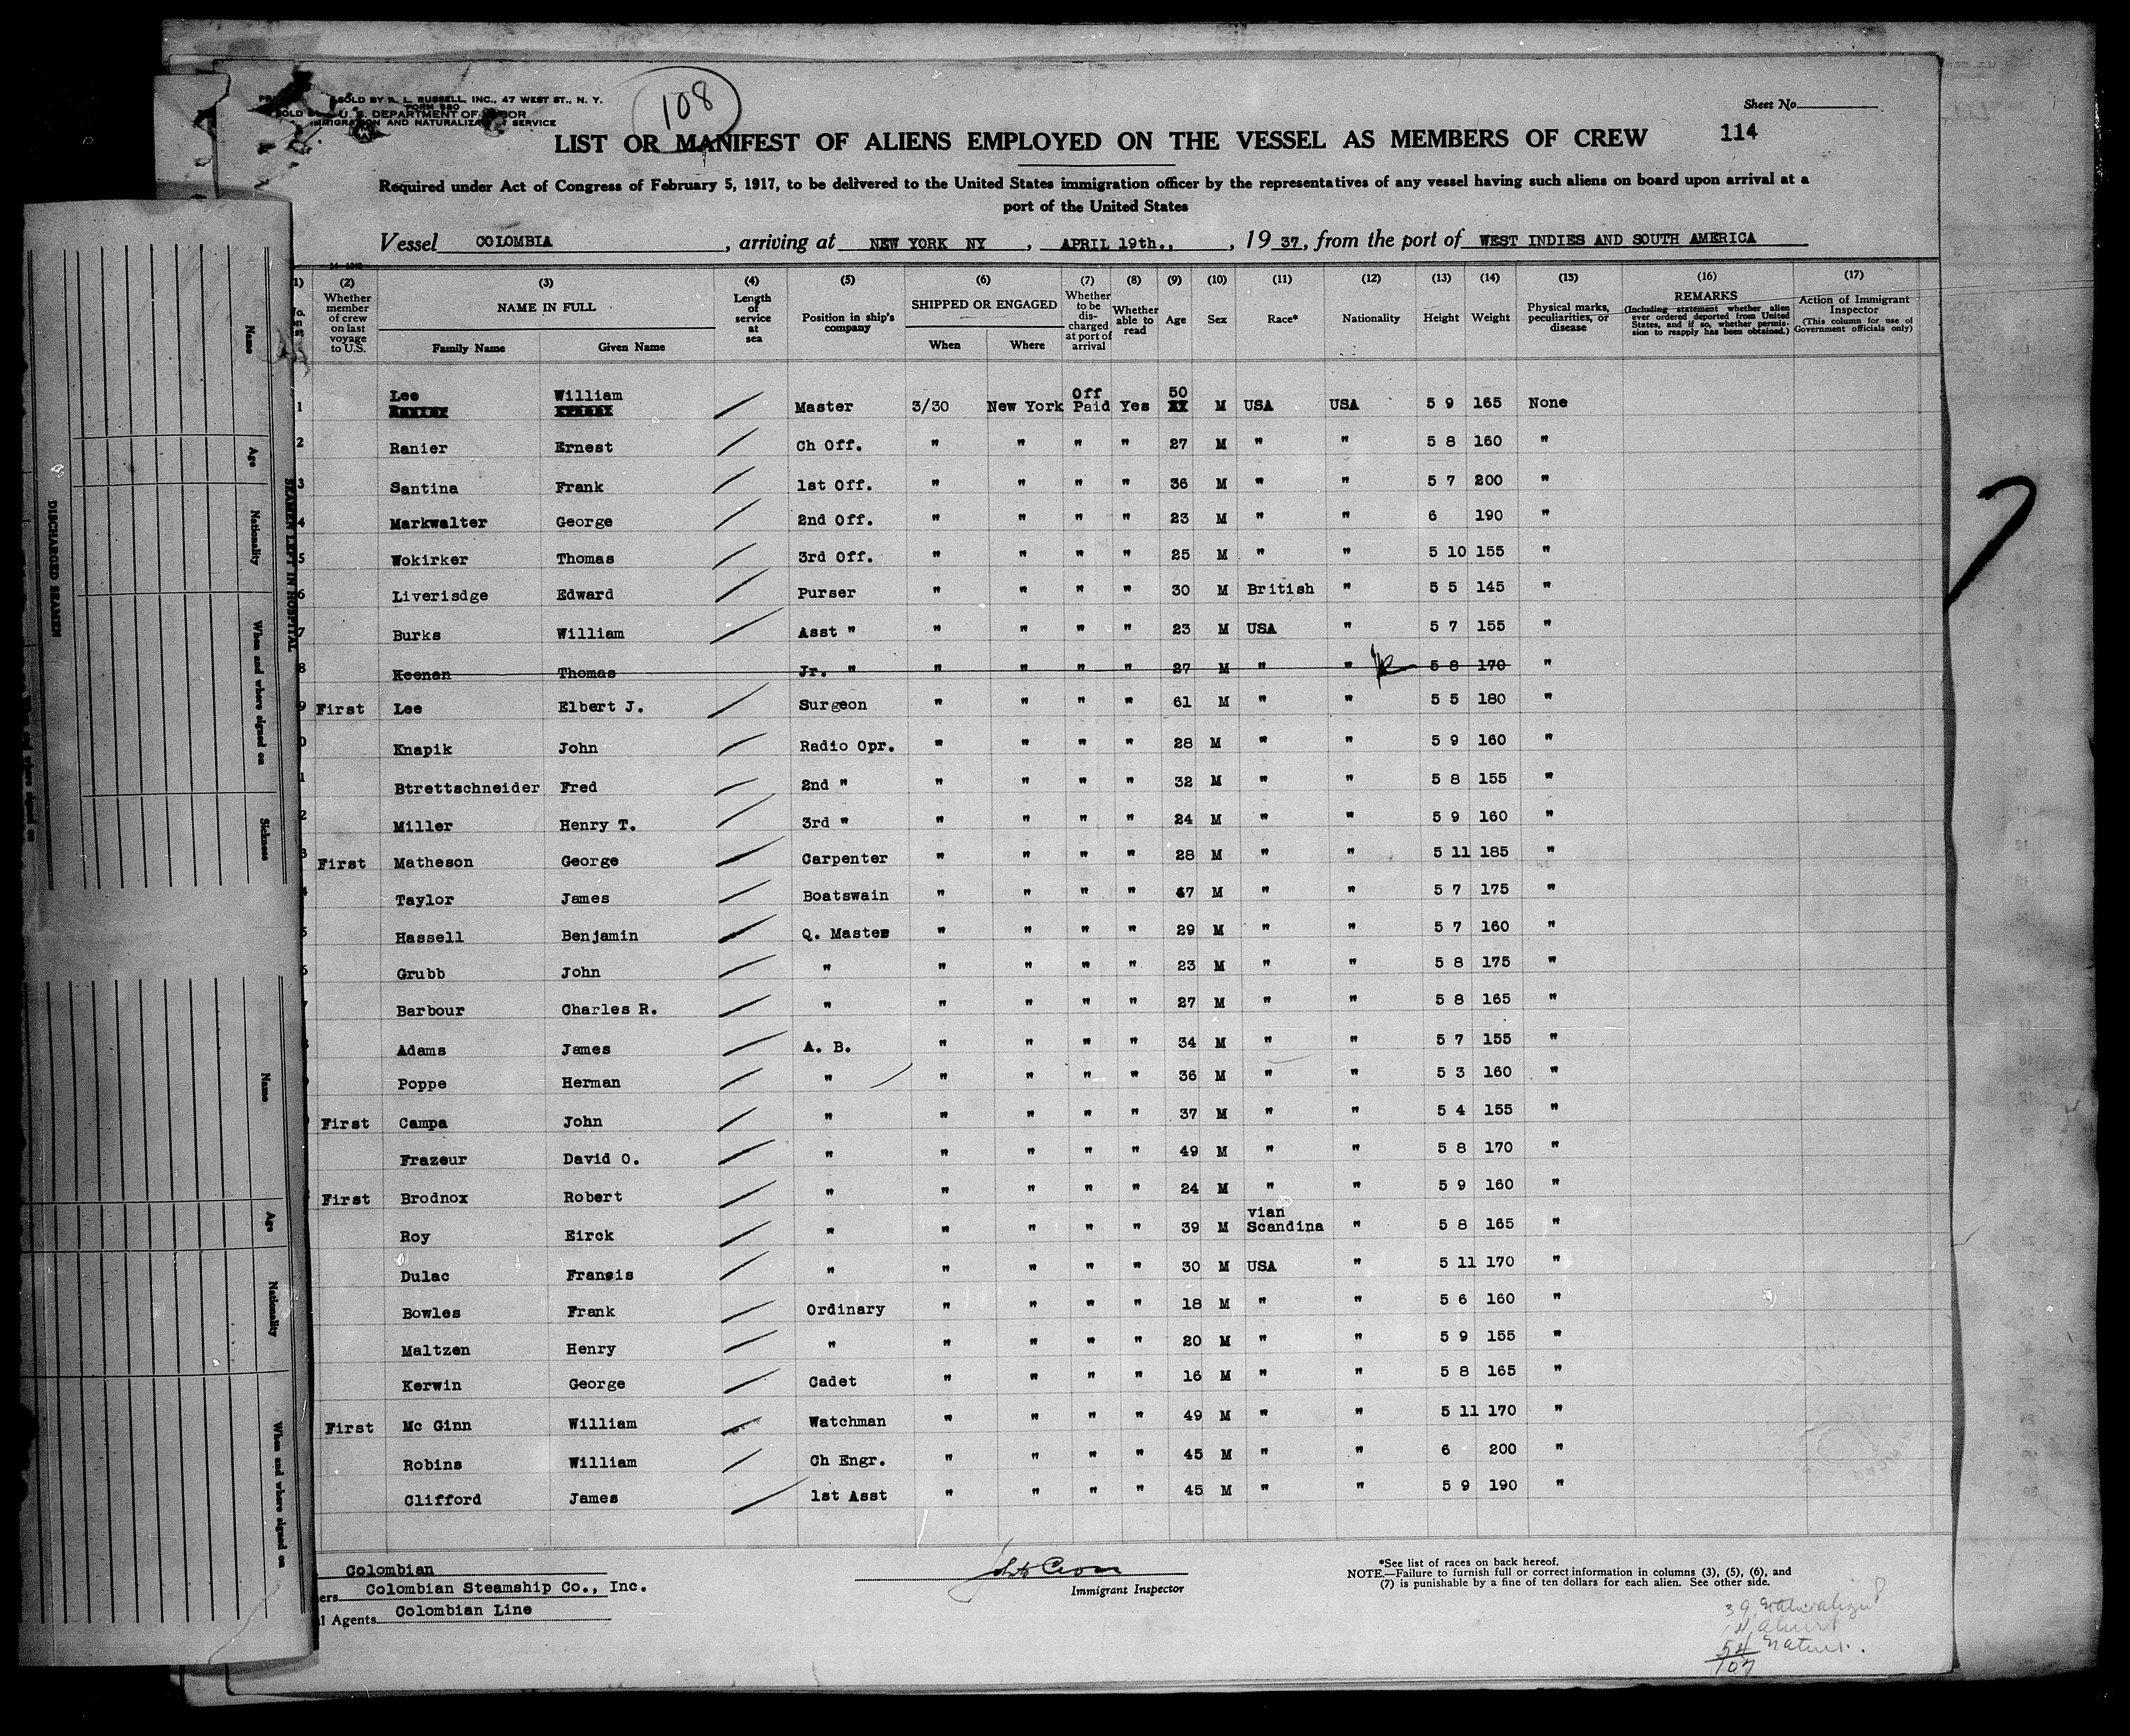 108
SOLD BY A. L. RUSSELL, INC., 47 WEST ST., N. Y.
FORM 680
SOLD U. S. DEPARTMENT OF LABOR
IMMIGRATION AND NATURALIZATION SERVICE
Sheet No.
114
LIST OR MANIFEST OF ALIENS EMPLOYED ON THE VESSEL AS MEMBERS OF CREW
Required under Act of Congress of February 5, 1917, to be delivered to the United States immigration officer by the representatives of any vessel having such aliens on board upon arrival at a
port of the United States
Vessel COLOMBIA, arriving at NEW YORK NY, APRIL 19th., , 19 37, from the port of WEST INDIES AND SOUTH AMERICA
(2) (3) (4) (5) (6) (7) (8) (9) (10) (11) (12) (13) (14) (15) (16) (17)
Whether member of crew on last voyage to U.S. NAME IN FULL Family Name Given Name Length of service at sea Position in ship's company SHIPPED OR ENGAGED When Where Whether to be discharged at port of arrival Whether able to read Age Sex Race* Nationality Height Weight Physical marks, peculiarities, or disease REMARKS (Including statement whether alien ever ordered deported from United States, and if so, whether permission to reapply has been obtained.) Action of Immigrant Inspector (This column for use of Government officials only)
1 Lee William Master 3/30 New York Off Paid Yes 50 M USA USA 5 9 165 None
2 Ranier Ernest Ch Off. " " " " 27 M " " 5 8 160 "
3 Santina Frank 1st Off. " " " " 36 M " " 5 7 200 "
4 Markwalter George 2nd Off. " " " " 23 M " " 6 190 "
5 Wokirker Thomas 3rd Off. " " " " 25 M " " 5 10 155 "
6 Liverisdge Edward Purser " " " " 30 M British " 5 5 145 "
7 Burks William Asst " " " " " 23 M USA " 5 7 155 "
8 Keenan Thomas Jr. " " " " " 27 M " " 5 8 170 "
9 First Lee Elbert J. Surgeon " " " " 61 M " " 5 5 180 "
0 Knapik John Radio Opr. " " " " 28 M " " 5 9 160 "
1 Btrettschneider Fred 2nd " " " " " 32 M " " 5 8 155 "
2 Miller Henry T. 3rd " " " " " 24 M " " 5 9 160 "
3 First Matheson George Carpenter " " " " 28 M " " 5 11 185 "
Taylor James Boatswain " " " " 47 M " " 5 7 175 "
5 Hassell Benjamin Q. Master " " " " 29 M " " 5 7 160 "
6 Grubb John " " " " " 23 M " " 5 8 175 "
7 Barbour Charles R. " " " " " 27 M " " 5 8 165 "
Adams James A. B. " " " " 34 M " " 5 7 155 "
Poppe Herman " " " " " 36 M " " 5 3 160 "
First Campa John " " " " " 37 M " " 5 4 155 "
Frazeur David O. " " " " " 49 M " " 5 8 170 "
First Brodnox Robert " " " " " 24 M " " 5 9 160 "
Roy Eirck " " " " " 39 M vian Scandina " 5 8 165 "
Dulac Francis " " " " " 30 M USA " 5 11 170 "
Bowles Frank Ordinary " " " " 18 M " " 5 6 160 "
Maltzen Henry " " " " " 20 M " " 5 9 155 "
Kerwin George Cadet " " " " 16 M " " 5 8 165 "
First Mc Ginn William Watchman " " " " 49 M " " 5 11 170 "
Robins William Ch Engr. " " " " 45 M " " 6 200 "
Clifford James 1st Asst " " " " 45 M " " 5 9 190 "
Colombian
ers Colombian Steamship Co., Inc.
l Agents Colombian Line
Immigrant Inspector
*See list of races on back hereof.
NOTE.—Failure to furnish full or correct information in columns (3), (5), (6), and
(7) is punishable by a fine of ten dollars for each alien. See other side.
39 Naturalized
14 Aliens
54 Natives.
107
SEAMEN LEFT IN HOSPITAL
Name Age Nationality When and where signed on Sickness
DISCHARGED SEAMEN
Name Age Nationality When and where signed on